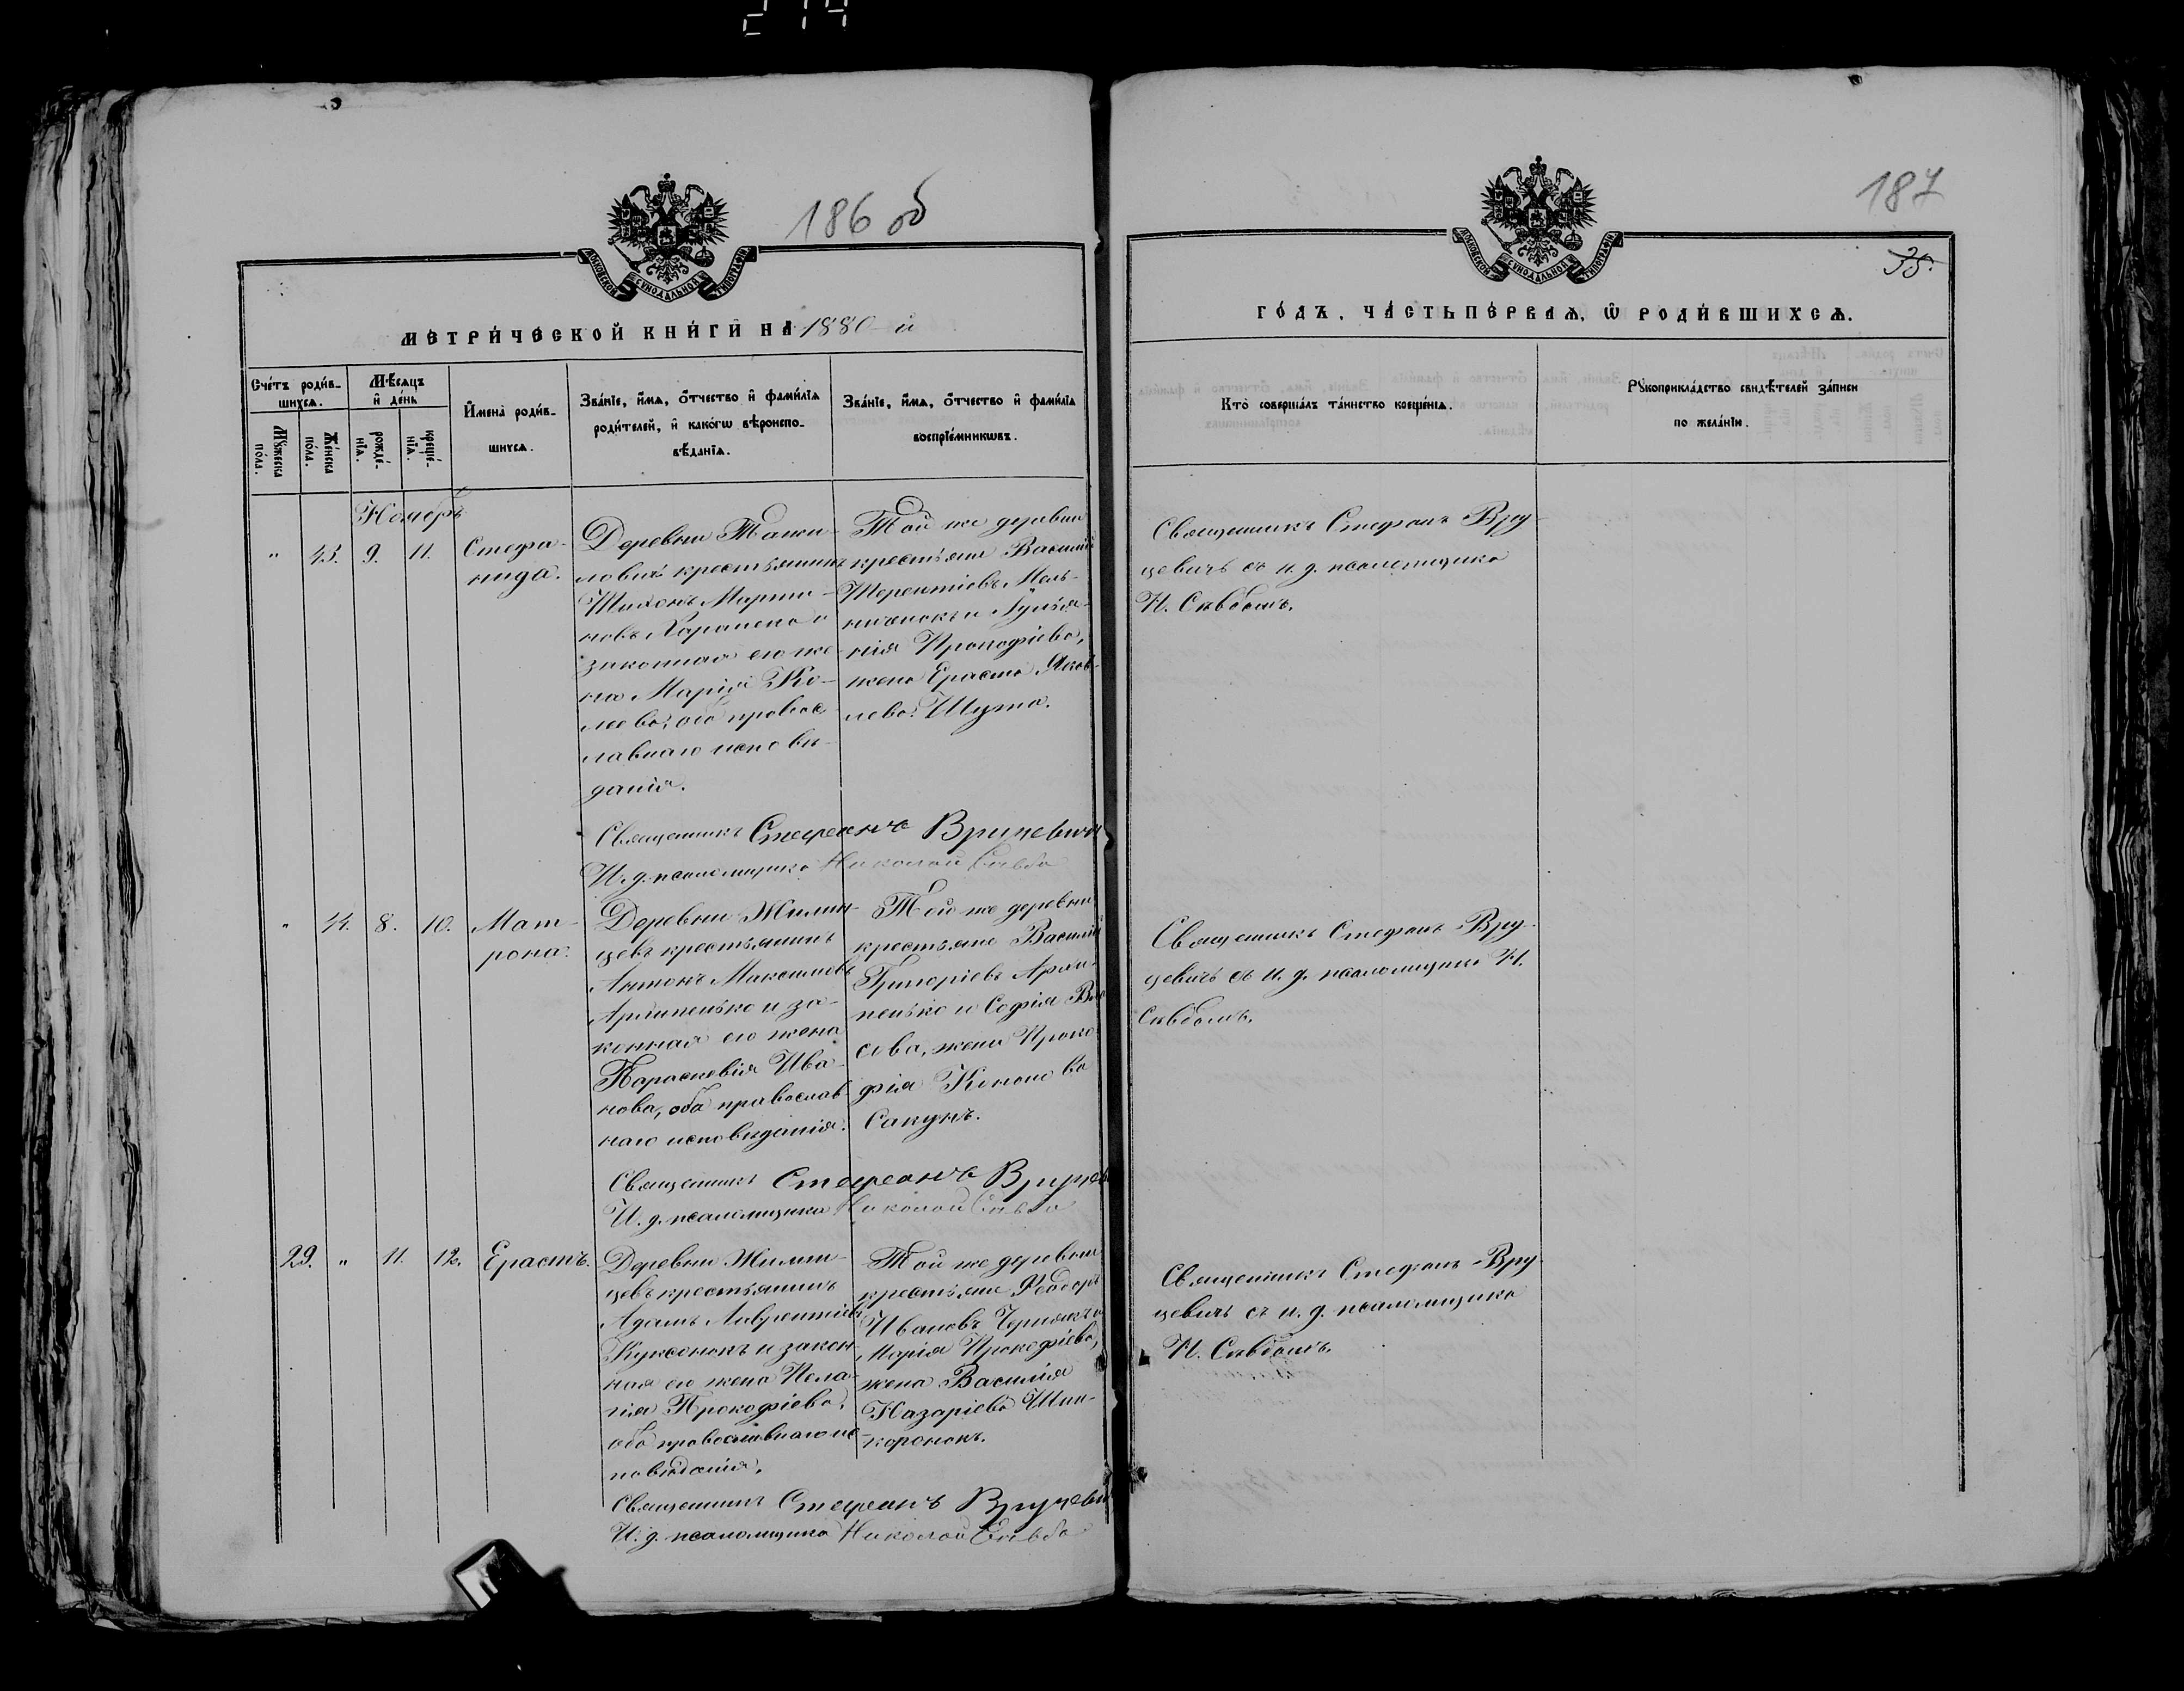 186 об
МОСКОВСКОЙ СѴНОДАЛЬНОЙ ТИПОГРАФІИ
МЕТРИ́ЧЕСКОЙ КНИ́ГИ НА 1880 й
Сче́тъ роди́в-
шихсѧ.
Мѣ́сѧцъ
и҆ де́нь
Мꙋ́жеска
по́ла.
Же́нска
по́ла.
рожде́-
нїѧ.
креще́-
нїѧ.
И҆мена̀ роди́в-
шихсѧ.
Зва́нїе, и҆́мѧ, ѻ҆́тчество и҆ фами́лїѧ
роди́телей, и҆ како́гѡ вѣроиспо-
вѣ́данїѧ.
Зва́нїе, и҆́мѧ, ѻ҆́тчество и҆ фами́лїѧ
воспрїе́мникѡвъ.
Ноябрь
" 43. 9. 11. Стефа-
нида.
Деревни
ловичъ крестьянинъ
Тихонъ Марти-
новъ и
законная его же-
на Марія
оба правос-
лавнаго исповѣ-
данія.
Той же деревни
крестьяне Василій
Терентіевъ Мель-
ниченокъ и
Прокофіева,
жена Ераста Яков-
лева Шута.
Священникъ Стефанъ Вруцевичъ
И. д. псаломщика Николай
" 44. 8. 10. Мат-
рона.
Деревни Жилин-
цевъ крестьянинъ
Антонъ Максимовъ
Архипенько и за-
конная его жена
Параскевія Ива-
нова, оба православ-
наго исповѣданія.
Той же деревни
крестьяне Василій
Григоріевъ Архи-
пенько и Софія
сова, жена Проко-
фія Конова
Сакунъ.
Священникъ Стефанъ Вруцев
И. д. псаломщика Николай
29. " 11. 12. Ерастъ.
Деревни Жилин-
цевъ крестьянинъ
Адамъ Лаврентіевъ
Куксонокъ и закон-
ная его жена Пела-
гія Прокофіева,
оба православнаго ис-
повѣданія.
Той же деревни
крестьяне Феодоръ
Ивановъ Чернякъ и
Марія Прокофіева,
жена Василія
Назаріева Шин-
коронокъ.
Священникъ Стефанъ Вруцеви
И. д. псаломщика Николай
187
35.
МОСКОВСКОЙ СѴНОДАЛЬНОЙ ТИПОГРАФІИ
ГО́ДЪ, ЧА́СТЬ ПЕ́РВАѦ, Ѽ РОДИ́ВШИХСѦ.
Кто̀ соверша́лъ та́инство креще́нїѧ.
Рꙋкоприкла́дство свидѣ́телей за́писи
по жела́нїи.
Священникъ Стефанъ Вру-
цевичъ съ и. д. псаломщика
Н.
Священникъ Стефанъ Вру-
цевичъ съ и. д. псаломщика Н.
Священникъ Стефанъ Вру-
цевичъ съ и. д. псаломщика
Н.